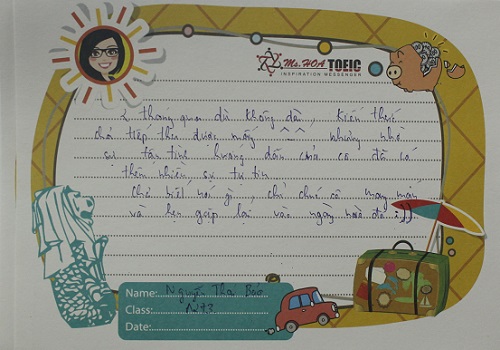 Ms. HOA TOEIC
INSPIRATION MESSENGER
2 tháng qua dù không dài, kiến thức
chả tiếp thu được mấy ^_^ nhưng nhờ
sự tận tình hướng dẫn của cô đã có
thêm nhiều sự tự tin.
Chả biết nói gì, chỉ chúc cô may mắn
và hẹn gặp lại vào ngày nào đó :))
Name: Nguyễn Thơ
Class:
Date: